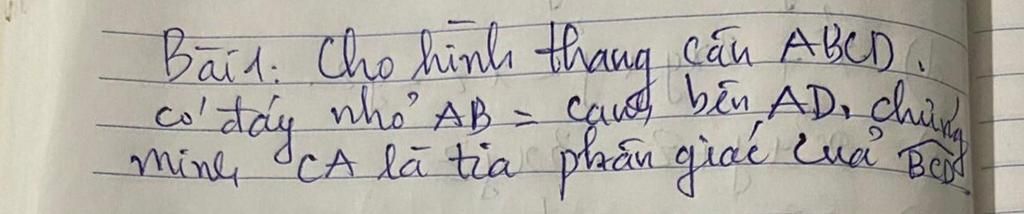 Bài 1: Cho hình thang cân ABCD.
có đáy nhỏ AB = cạnh bên AD, chứng
minh CA là tia phân giác của BCD